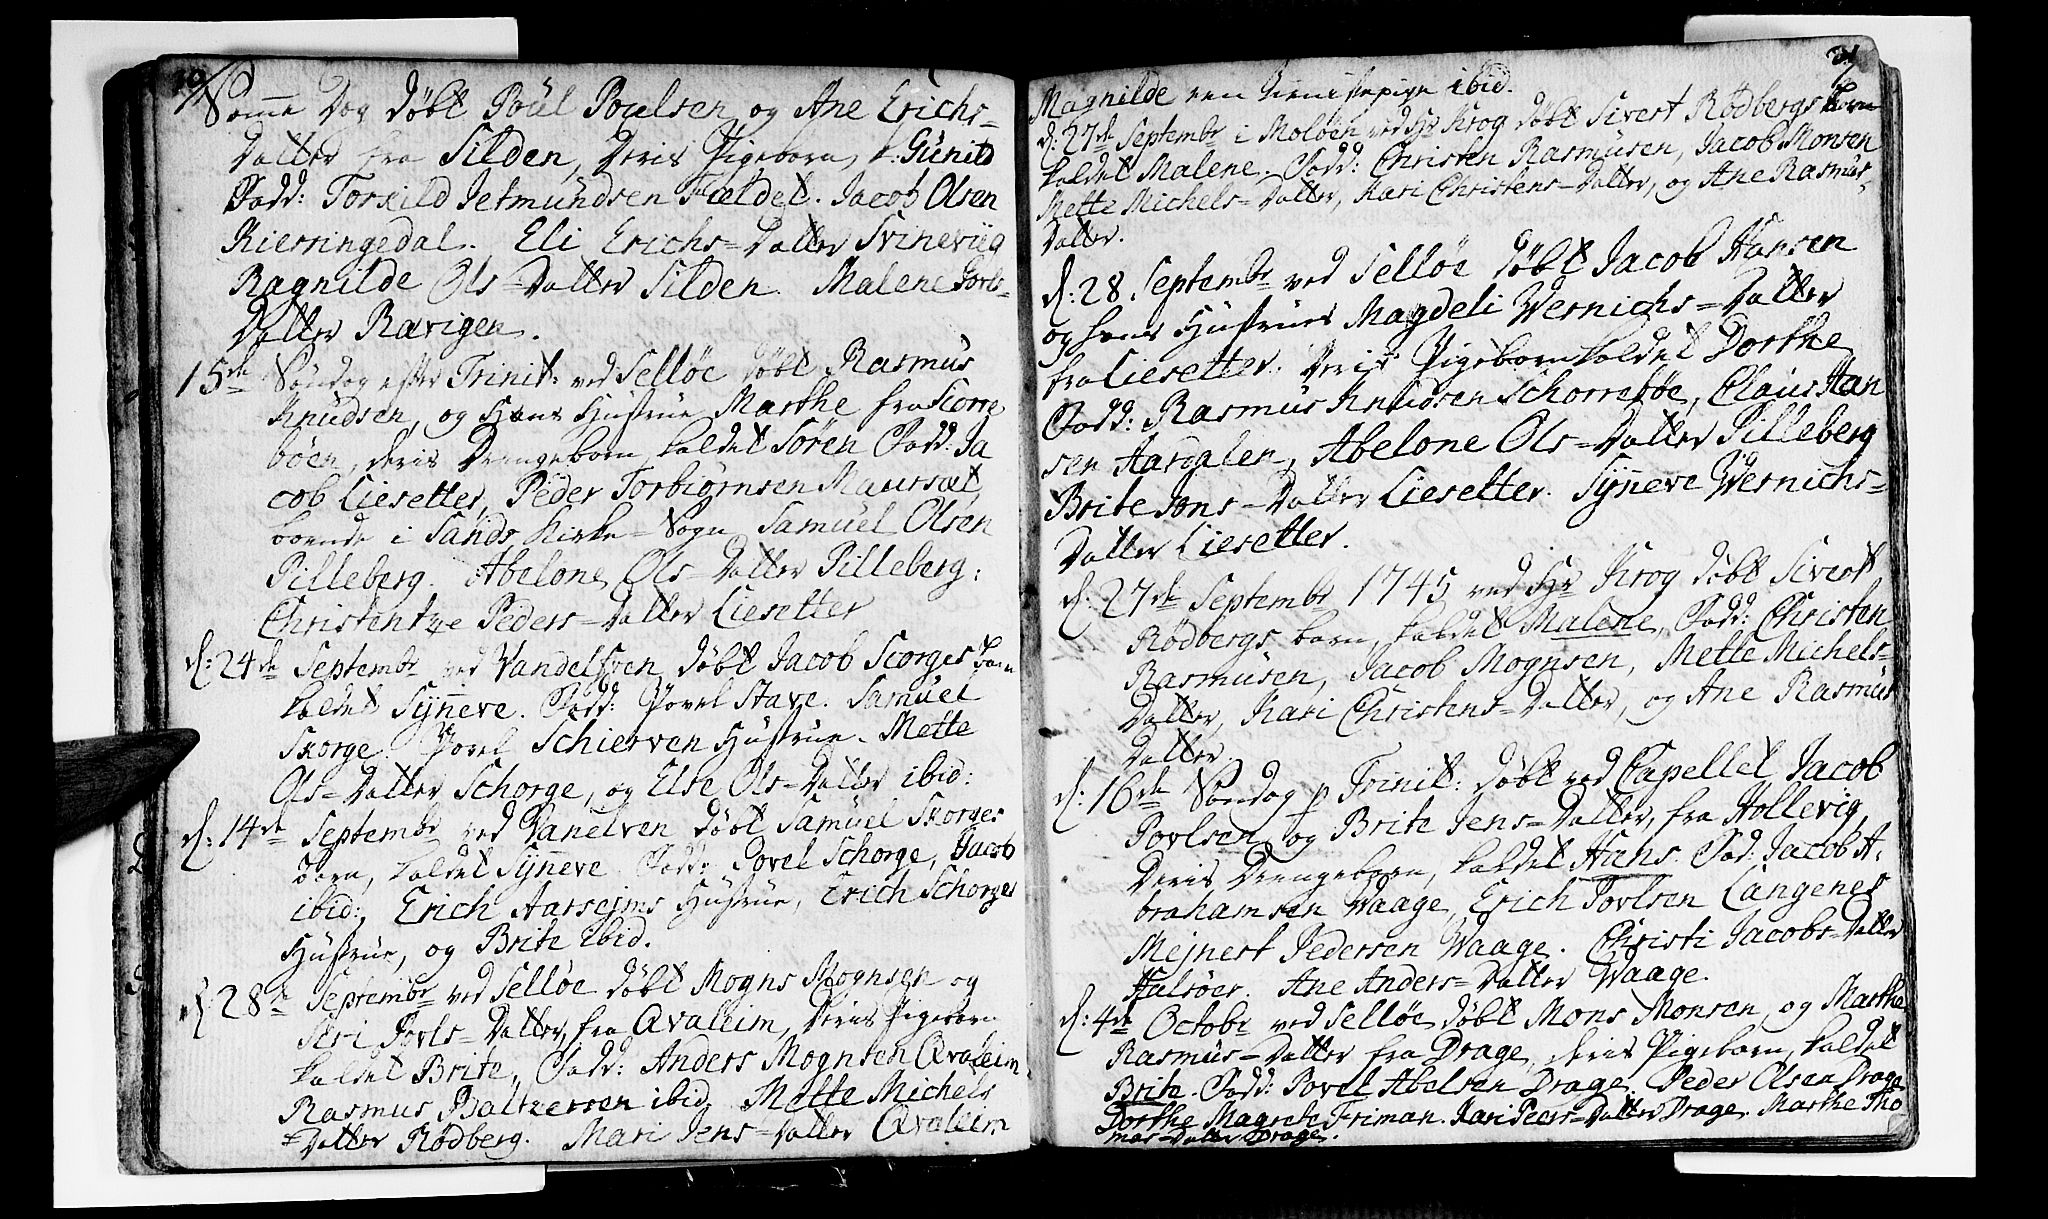 Samme Dag döbt Poül Poulsen og Ane Erichs=
Datter fra Silden, Deris Pigebarn, k: Günild
Fadd: Torkild Jetmundsen Fieldet. Jacob Olsen
Kierringedal. Eli Erichs=Datter Svineviig
Ragnilde Ols=Datter Silden. Malene Joels=
Datter Ravigen.
15de Söndag efter Trinit: ved Sellöe döbt Rasmus
Knudsen, og Hans Hustrue Marthe fra Scorre
böen, deris Drengebarn kaldet Sören Fadd: Ja
cob Liesetter, Peder Torbiörnsen Maursæt,
boende i Sands Kirke=Sogn Samuel Olsen
Pilleberg. Abelone Ols=Datter Pilleberg:
Christentze Peders=Datter Liesetter
d: 24de Septembr ved Vandelsven döbt Jacob Scorges barn
kaldet Syneve. Fadd: Povel Stave. Samuel
Skorge. Povel Schierven Hustrue. Mette
Ols=Datter Schorge, og Else Ols=Datter ibid:
d: 14de Septembr ved Vanelven döbt Samuel Skorges
barn, kaldet Syneve Fadd: Povel Schorge, Jacob
ibid:, Erich Aarseims Hustrue, Erich Schorges
Hustrue, og Brite ibid.
d 28de Septembr ved Sellöe döbt Mogns Mognsen og
Seri Povls=Datter, fra Qvaleim, Deris Pigebarn
kaldet Brite, Fadd: Anders Mognsen Qvaleim
Rasmus Baltzersen ibid. Mette Michels
=Datter Rödberg. Mari Jens=Datter Qvaleim
31
Magnilde een tienistepige ibid.
d: 27de Septembr i Molöen ved Hr Krog döbt Sivert Rödbergs barn
kaldet Malene. Fadd: Christen Rasmüsen, Jacob Monsen
Mette Michels=Datter, Kari Christens=Datter, og Ane Rasmus=
Datter.
d: 28. Septembr ved Sellöe döbt Jacob Hansen
og hans Hustrues Magdeli Wernichs=Datter
fra Liesetter. Deris Pigebarn kaldet Dorthe
Fadd: Rasmus Knudsen Schorreböe, Claus Han
sen Aardalen, Abelone Ols=Datter Pilleberg
Brite Jons=Datter Liesetter. Syneve Wernichs=
Datter Liesetter.
d: 27de Septembr 1745 ved Hr Krog döbt Sivert
Rödbergs barn, kaldet Malene, Fadd: Christen
Rasmusen, Jacob Mognsen, Mette Michels=
Datter, Kari Christens=Datter, og Ane Rasmus
Datter.
d: 16de Söndag p Trinit: döbt ved Capellet Jacob
Povlsen og Brite Jens=Datter, fra Hollevig,
Deris Drengebarn, kaldet Hans. Fad: Jacob A.
brahamsen Waage, Erich Povlsen Langenes
Mejnert Pedersen Waage. Christi Jacobs=Datter
Halsöer. Ane Anders=Datter Waage.
d: 4de Octobr ved Sellöe döbt Mons Monsen, og Marthe
Rasmus=Datter fra Drage, deris Pigebarn, kaldet
Brite. Fadd: Povel Abelsen Drage. Peder Olsen Drage
Dorthe Magrete Friman. Kari Peers=Datter Drage. Marthe Tho
mas=Datter Drage.